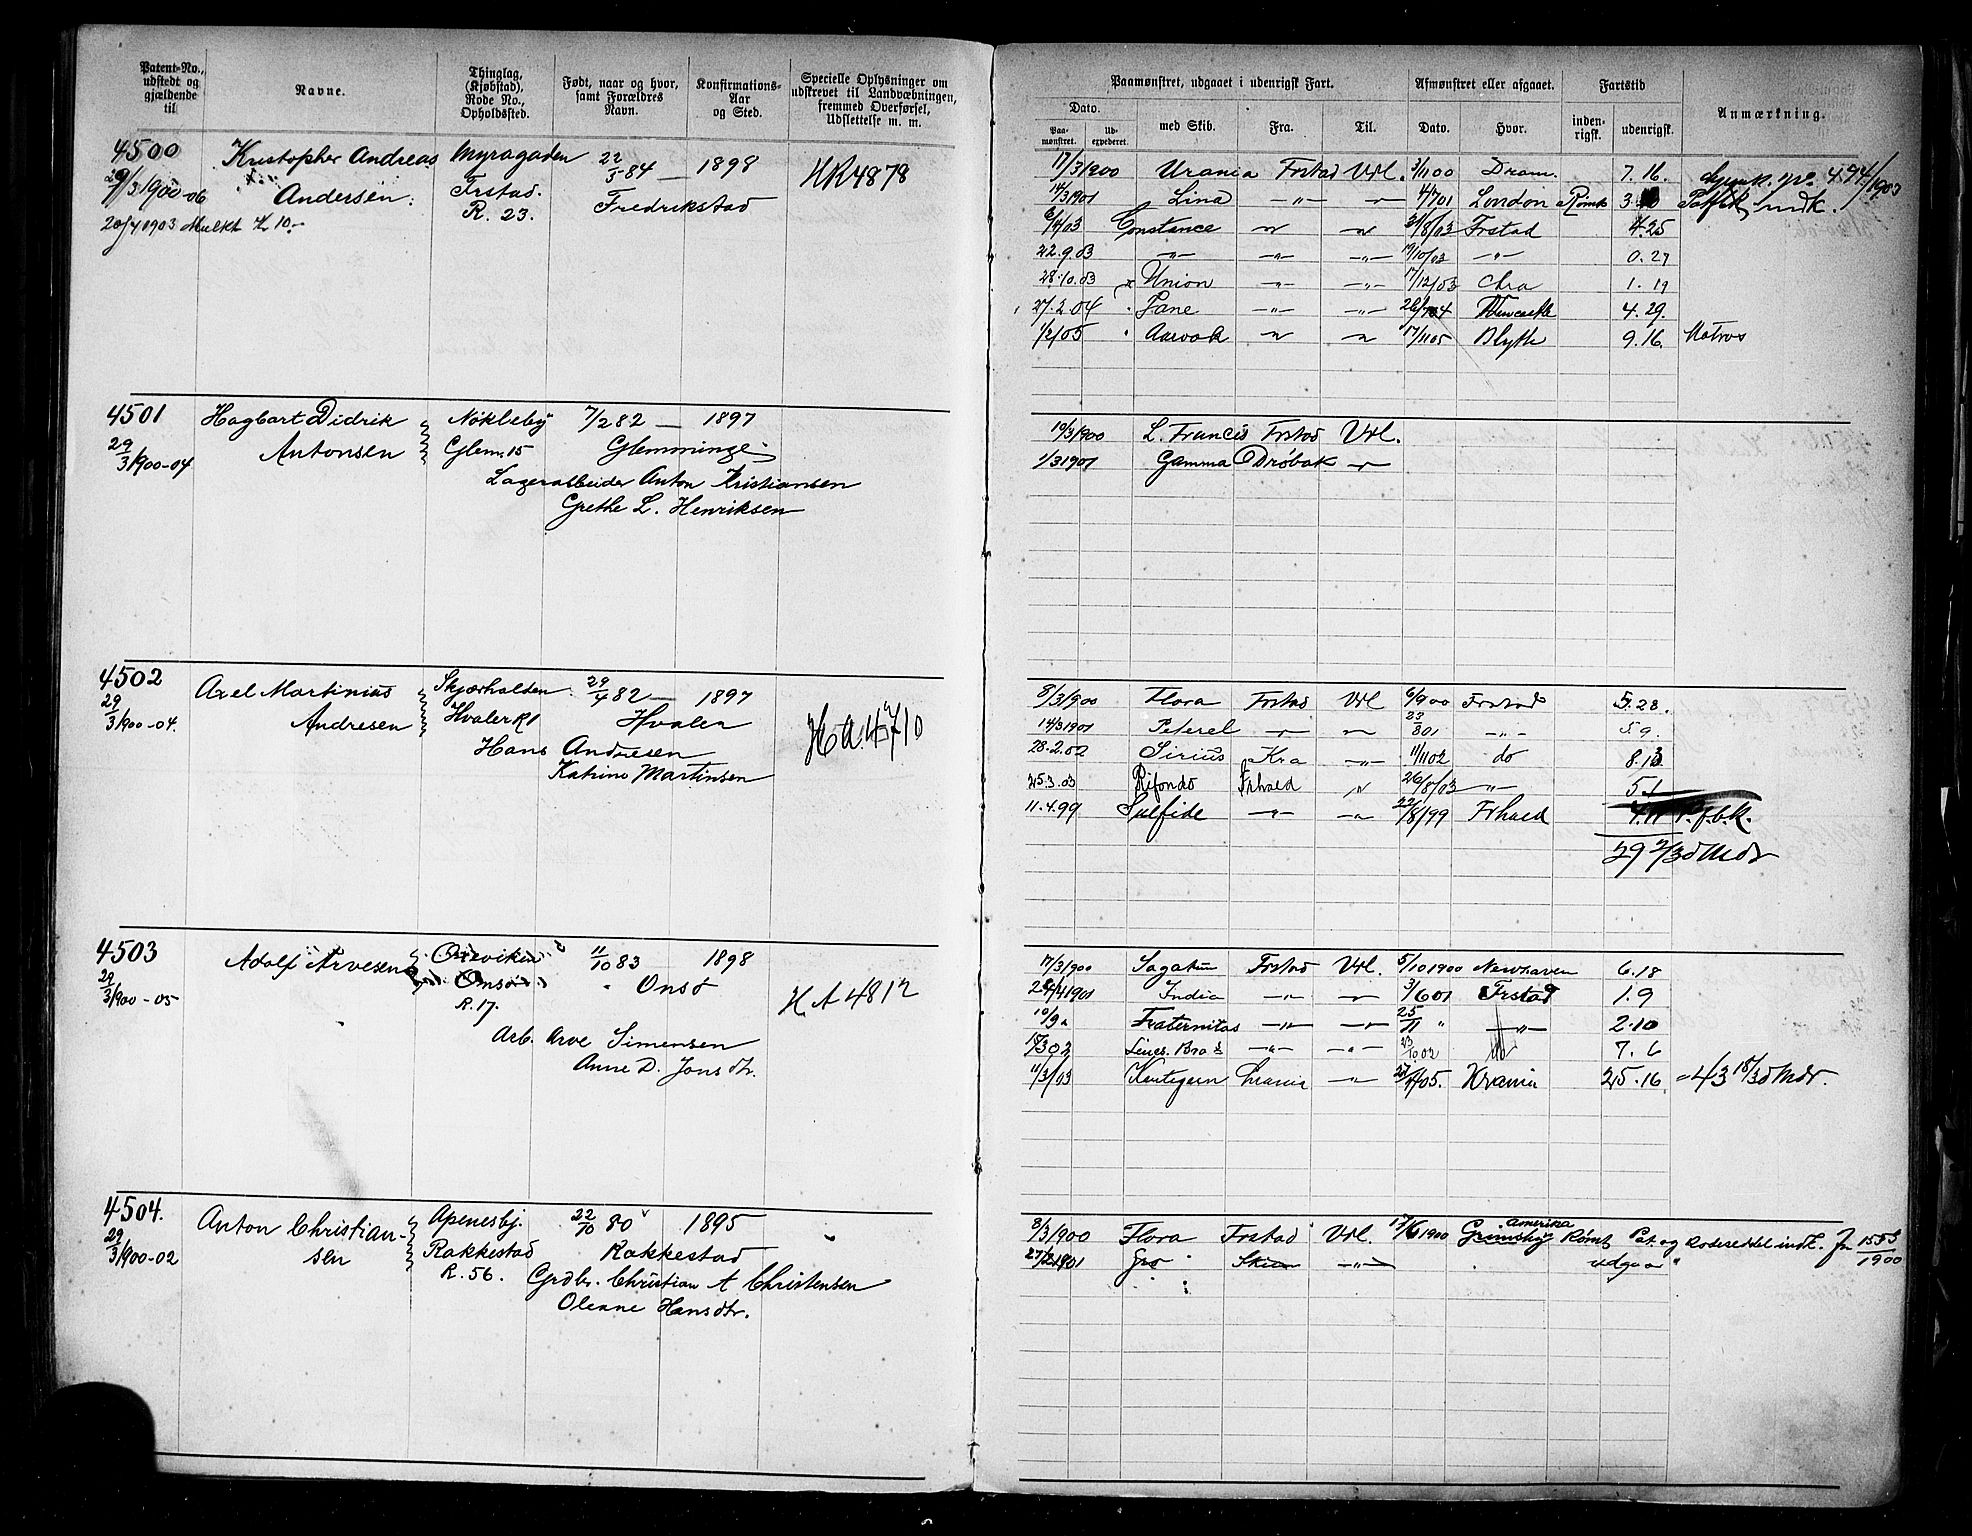 Patent-No., udstedt og gjældende til
Navne.
Thinglag, (Kjøbstad), Rode No., Opholdssted.
Født, naar og hvor, samt Forældres Navn.
Konfirmations-Aar og Sted.
Specielle Oplysninger om udskrevet til Landværnbningen, fremmed Overførsel, Udslettelse m. m.
Paamønstret, udgaaet i udenrigsk Fart.
Afmønstret eller afgaaet.
Fartstid
Anmærkning.
Dato.
Paa-mønstret.
Ud-expederet.
med Skib.
Fra.
Til.
Dato.
Hvor.
inden-rigsk.
udenrigsk.
4500 Kristopher Andreas Myragaden 22/3 84 — 1898 HK 4878
29/3 1900-06 Andersen. Frstad. Fredrikstad
R. 23.
20/4 1903 Mulkt K 10.-
17/3 1900 Urania Frstad Vrl. 3/11 00 Dram. 7.16.
14/3 1901 Lina —"— 4/7 01 London Rømte 3.
6/4 03 Constance " " 31/8 03 Frstad 4.25
22.9.03 —"— —"— —"— 19/10/03 —"— 0.27
28.10.03 Union —"— —"— 17/12/03 Chra 1.19
27.2.04 Fane —"— —"— 26/7 04 Newcastle 4.29.
1/2/05 Aarvak " " 17/11 05 Blyth 9.16. Matros
4501 Hagbart Didrik Nokleby 7/2 82 — 1897
29/3 1900-04 Antonsen Glem. 15 Glemminge
Lagerarbeider Anton Kristiansen
Grethe L. Henriksen
19/3 1900 L. Francis Frstad Vrl.
1/3 1901 Gamma Drøbak "
4502 Axel Martinius Skjærhalden 29/4 82 — 1897
29/3 1900-04. Andresen Hvaler R1 Hvaler H.A. 4710
Hans Andresen
Katrine Martinsen
8/3 1900 Flora Frstad Vrl 6/9 00 Frstad 5.28.
14/3 1901 Peterel " " 23/8 01 —"— 5 9.
28.2.02 Sirius Kra —"— 11/11 02 do 8.13
25.3.03 Rifondo Frhald " 26/8/03 —"— 5.1
11.4.99 Sulfide —"— —"— 22/8/99 Frhald 4.11 P.f.b.K.
29 2/30 Mdr
4503 Adolf Arvesen 11/10 83 1898
29/3 1900-05 Onsø Onsø H A 4812
R. 17.
Arb. Arve Simensen
Anne D. Jonsdtr.
17/3 1900 Sagatun Frstad Vrl. 5/10 1900 Newhaven 6.18
24/4 1901 India —"— " 3/6 01 Frstad 1.9
10/9 " Fraternitas —"— —"— 25/11 " —"— 2.10
—"— —"— 23/10 02 do 7.6
11/3/03 Kentigern Crania —"— Krania 25.16 = 43 18/30 Mdr.
4504. Anton Christian- Apenesbj. 22/10 80 1895
29/3 1900-02 sen Rakkestad Rakkestad
R. 56. Grdbr. Christian A Christensen
Oleane Hansdtr.
8/3 1900 Flora Frstad Vrl. 17/6 1900 Grimsby Amerika Rømt Pat. og Roderseddel indk. Jn 1553/1900
27/2 1901 Gro Skien —"— udgaar